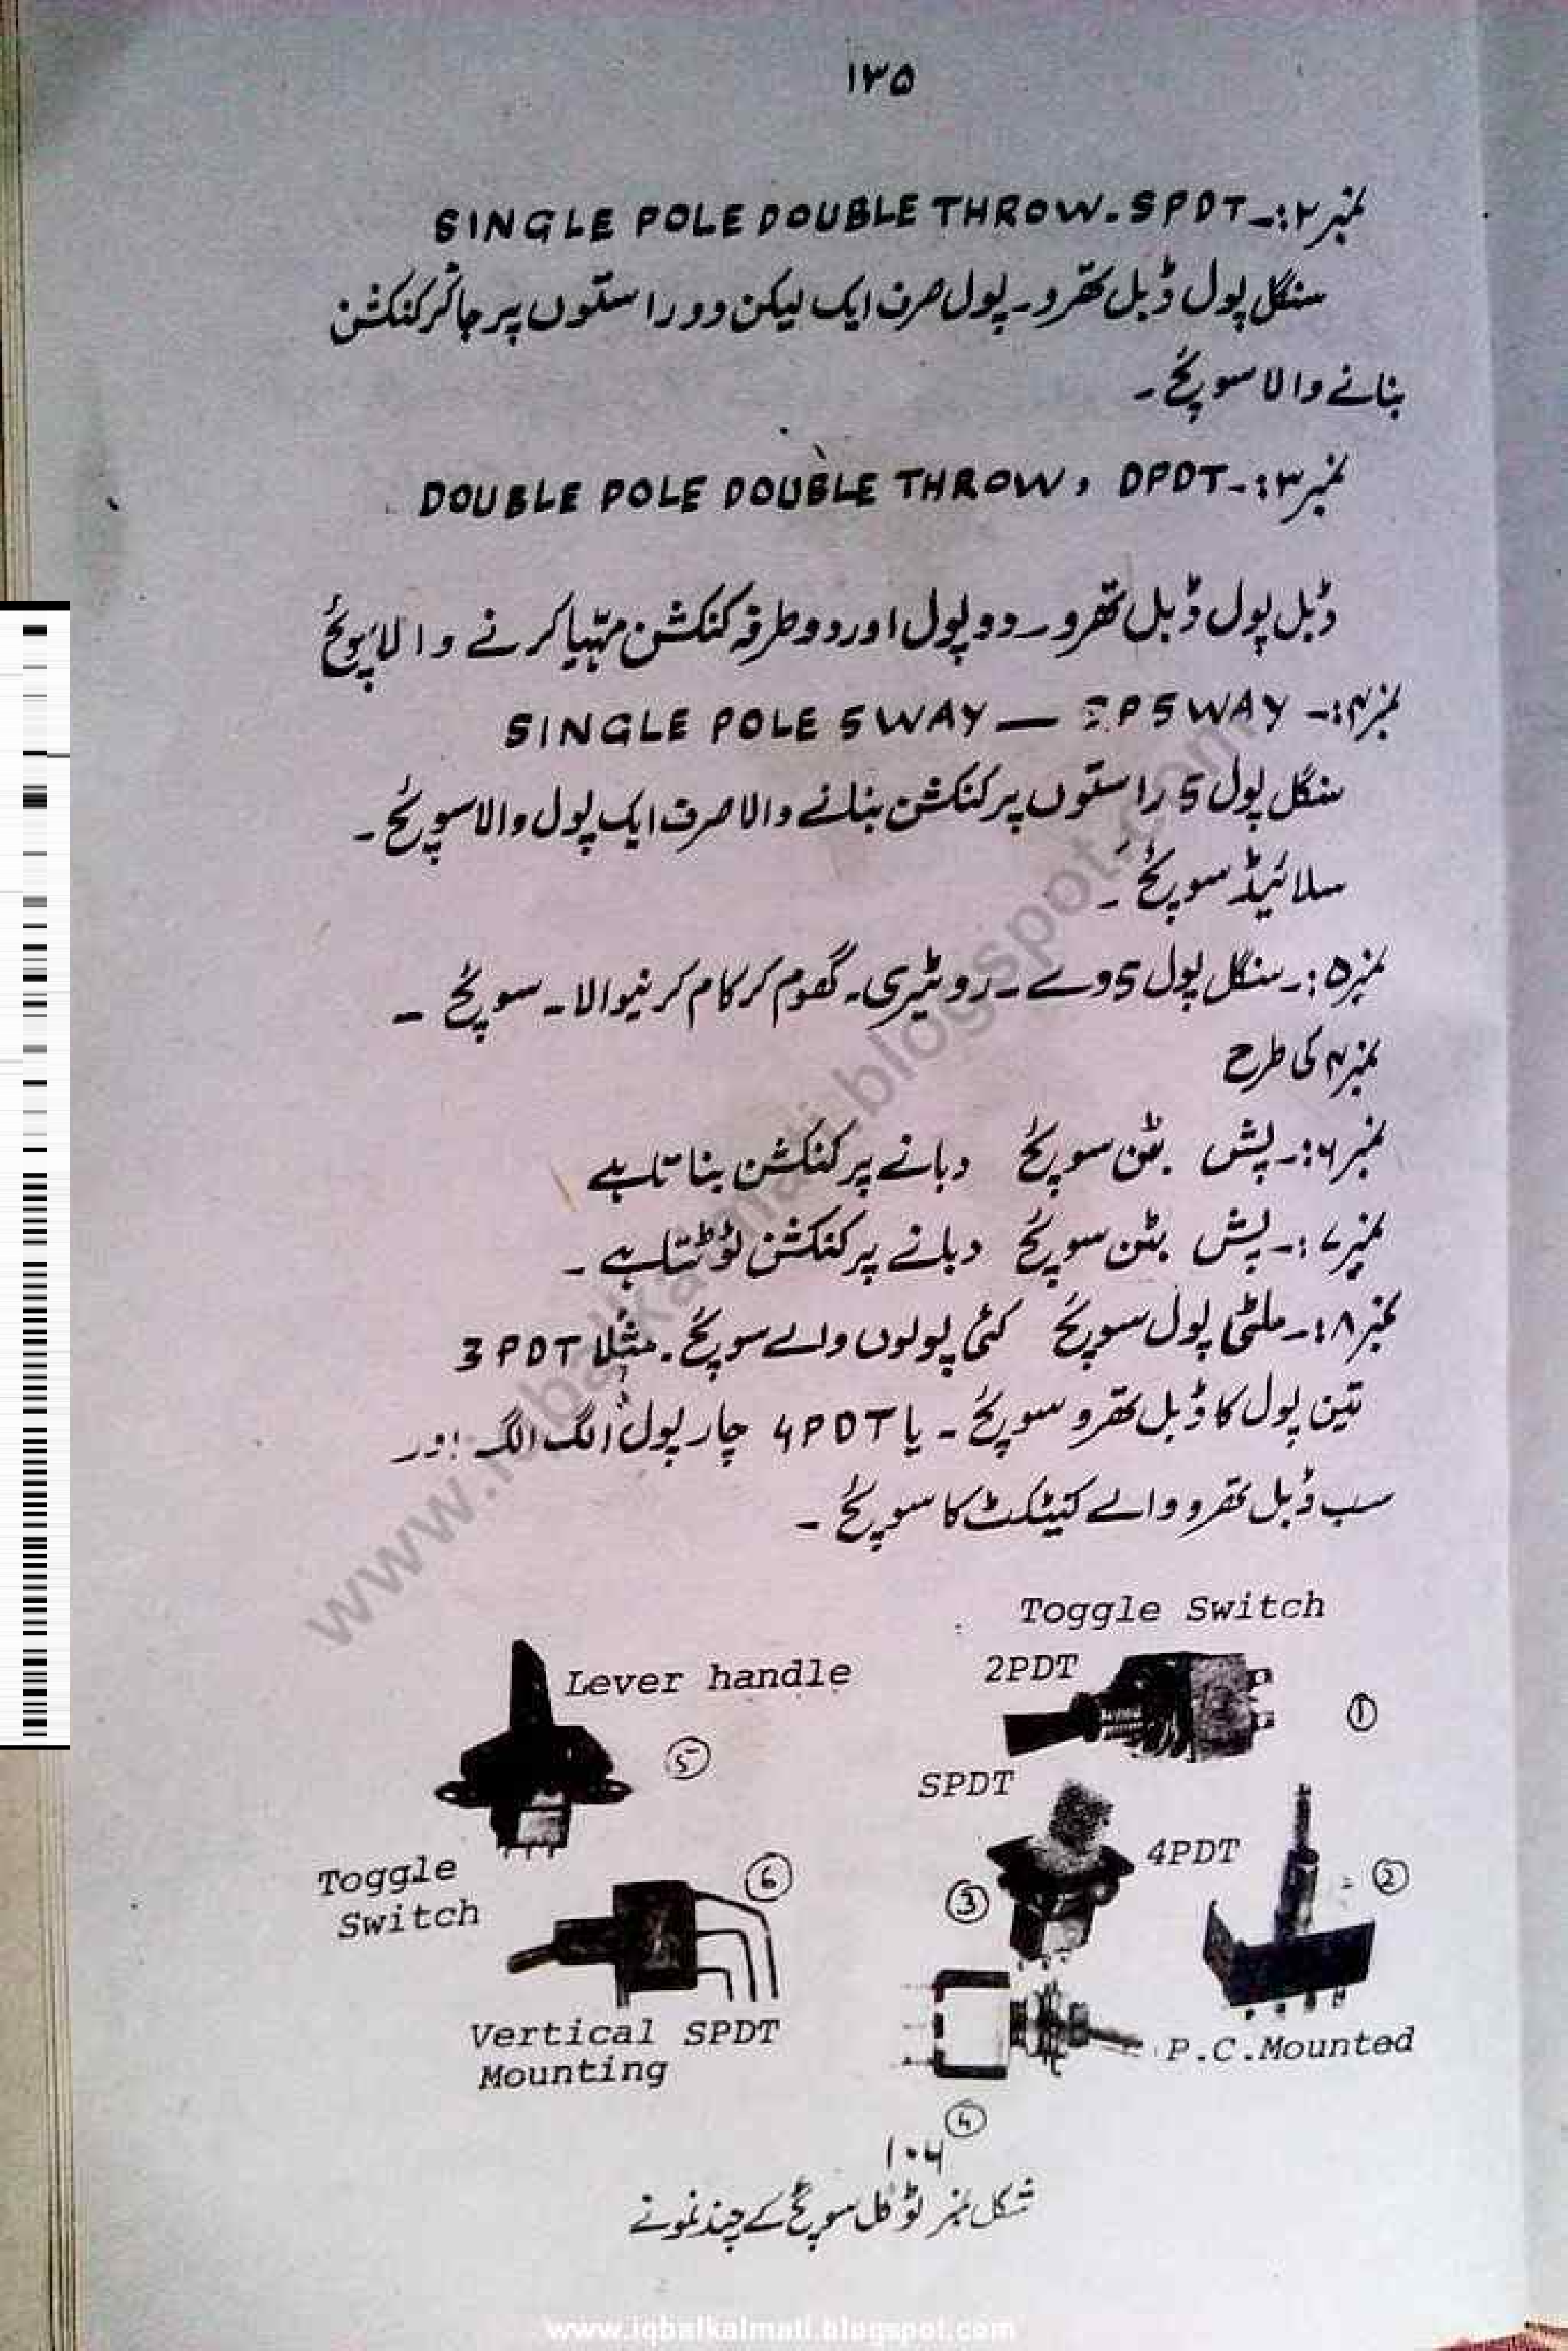 ۱۳۵
نمبر۲:۔ SINGLE POLE DOUBLE THROW. SPDT
سنگل پول ڈبل تھرو۔ پول صرف ایک لیکن دو راستوں پر جا کر کنکشن
بنانے والا سوئچ۔
نمبر۳:۔ DOUBLE POLE DOUBLE THROW, DPDT
ڈبل پول ڈبل تھرو۔ دو پول اور دو طرفہ کنکشن مہیا کرنے والا سوئچ
نمبر۴:۔ SINGLE POLE 5WAY — SP5WAY
سنگل پول 5 راستوں پر کنکشن بنانے والا صرف ایک پول والا سوئچ۔
سلائیڈ سوئچ۔
نمبر۵:۔ سنگل پول 5 وے۔ روٹیری۔ گھوم کر کام کرنیوالا۔ سوئچ۔
نمبر۴ کی طرح
نمبر۶:۔ پش بٹن سوئچ دبانے پر کنکشن بناتا ہے
نمبر۷:۔ پش بٹن سوئچ دبانے پر کنکشن ٹوٹتا ہے۔
نمبر۸:۔ ملٹی پول سوئچ کئی پولوں والے سوئچ۔ مثلاً 3PDT
تین پول کا ڈبل تھرو سوئچ۔ یا 4PDT چار پول الگ الگ اور
سب ڈبل تھرو والے کنیٹکٹ کا سوئچ۔
Toggle Switch
Lever handle
2PDT
①
⑤
SPDT
4PDT
②
③
Toggle
Switch
⑥
Vertical SPDT
Mounting
P.C.Mounted
④
۱۰۶
شکل نمبر ٹوگل سوئچ کے چند نمونے
www.iqbalkalmati.blogspot.com
www.iqbalkalmati.blogspot.com